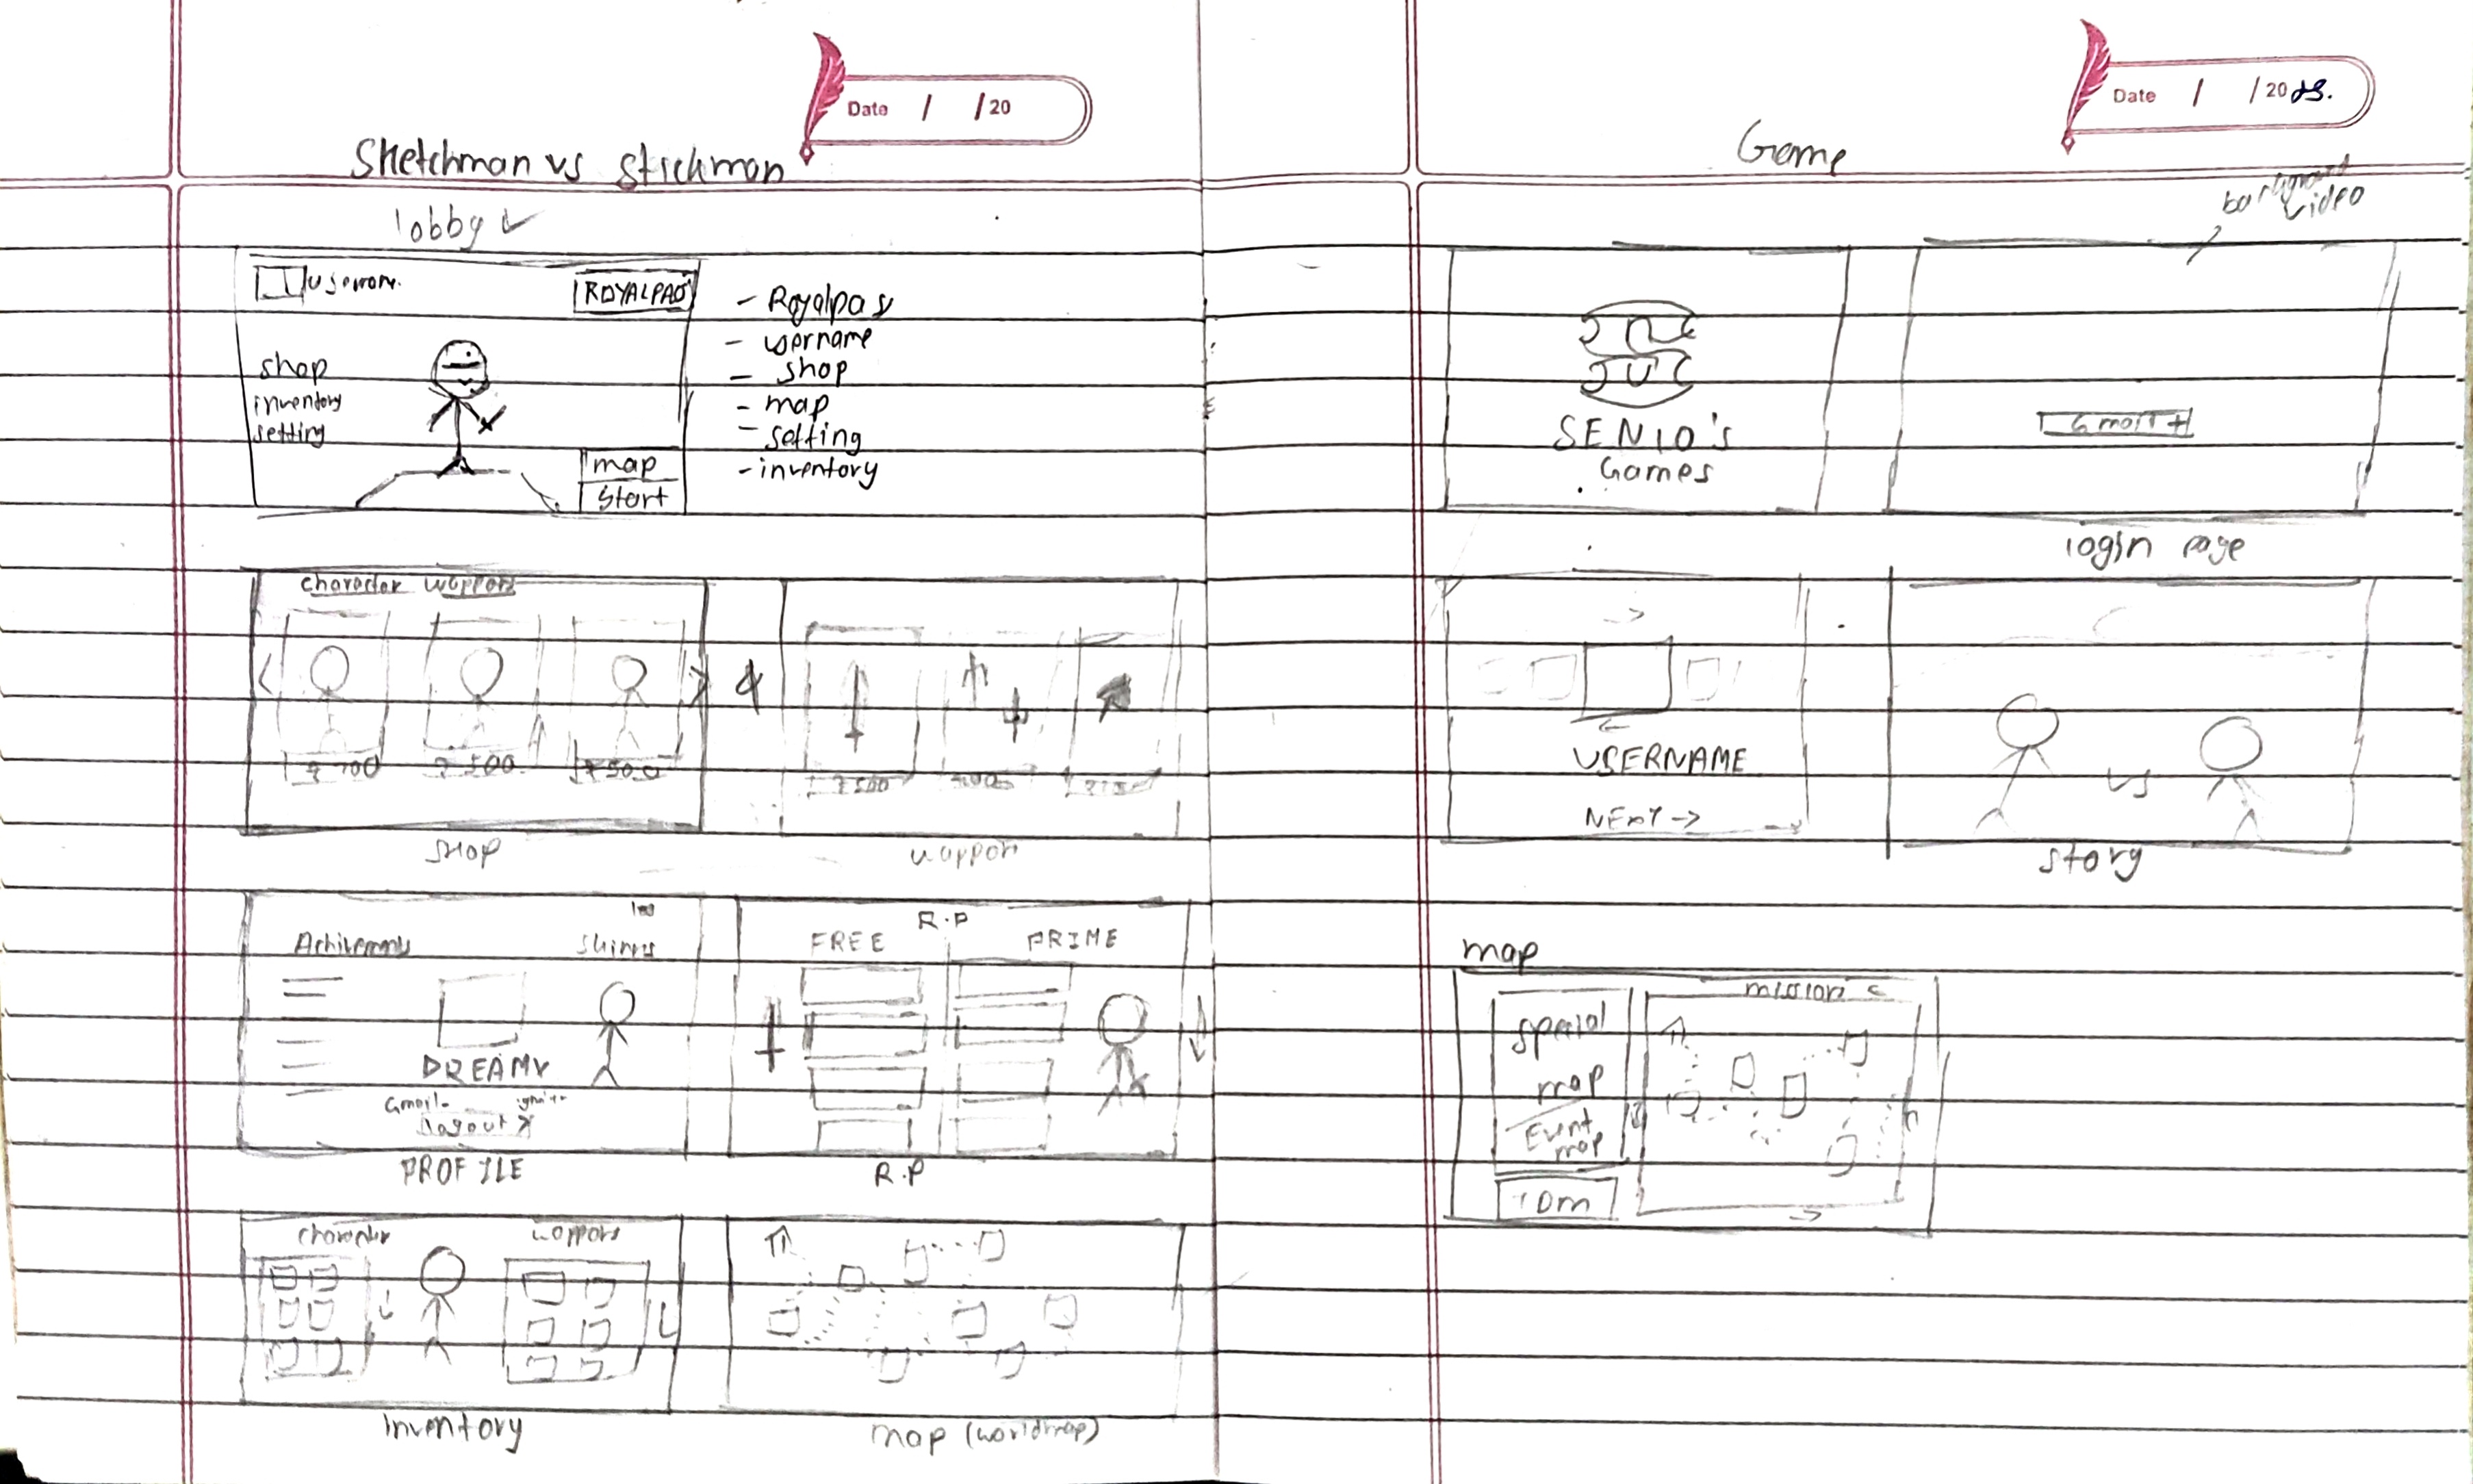 Date / /20
Sketchman vs stickman
lobby ✓
username.
ROYALPAS
shop
inventory
setting
map
start
- Royalpas
- username
- shop
- map
- setting
- inventory
character woppons
₹ 700
₹ 500
₹ 500
SHOP
₹ 500
woppon
Achivements
Skinns
DREAMY
Gmail-
logout
PROFILE
R.P
FREE
PRIME
R.P
character
woppons
Inventory
map (worldmap)
Date / /20 25.
Game
background
video
SENIO's
Games
Gmail +
login page
USERNAME
NEXT →
vs
story
map
special
map
Event
map
mission